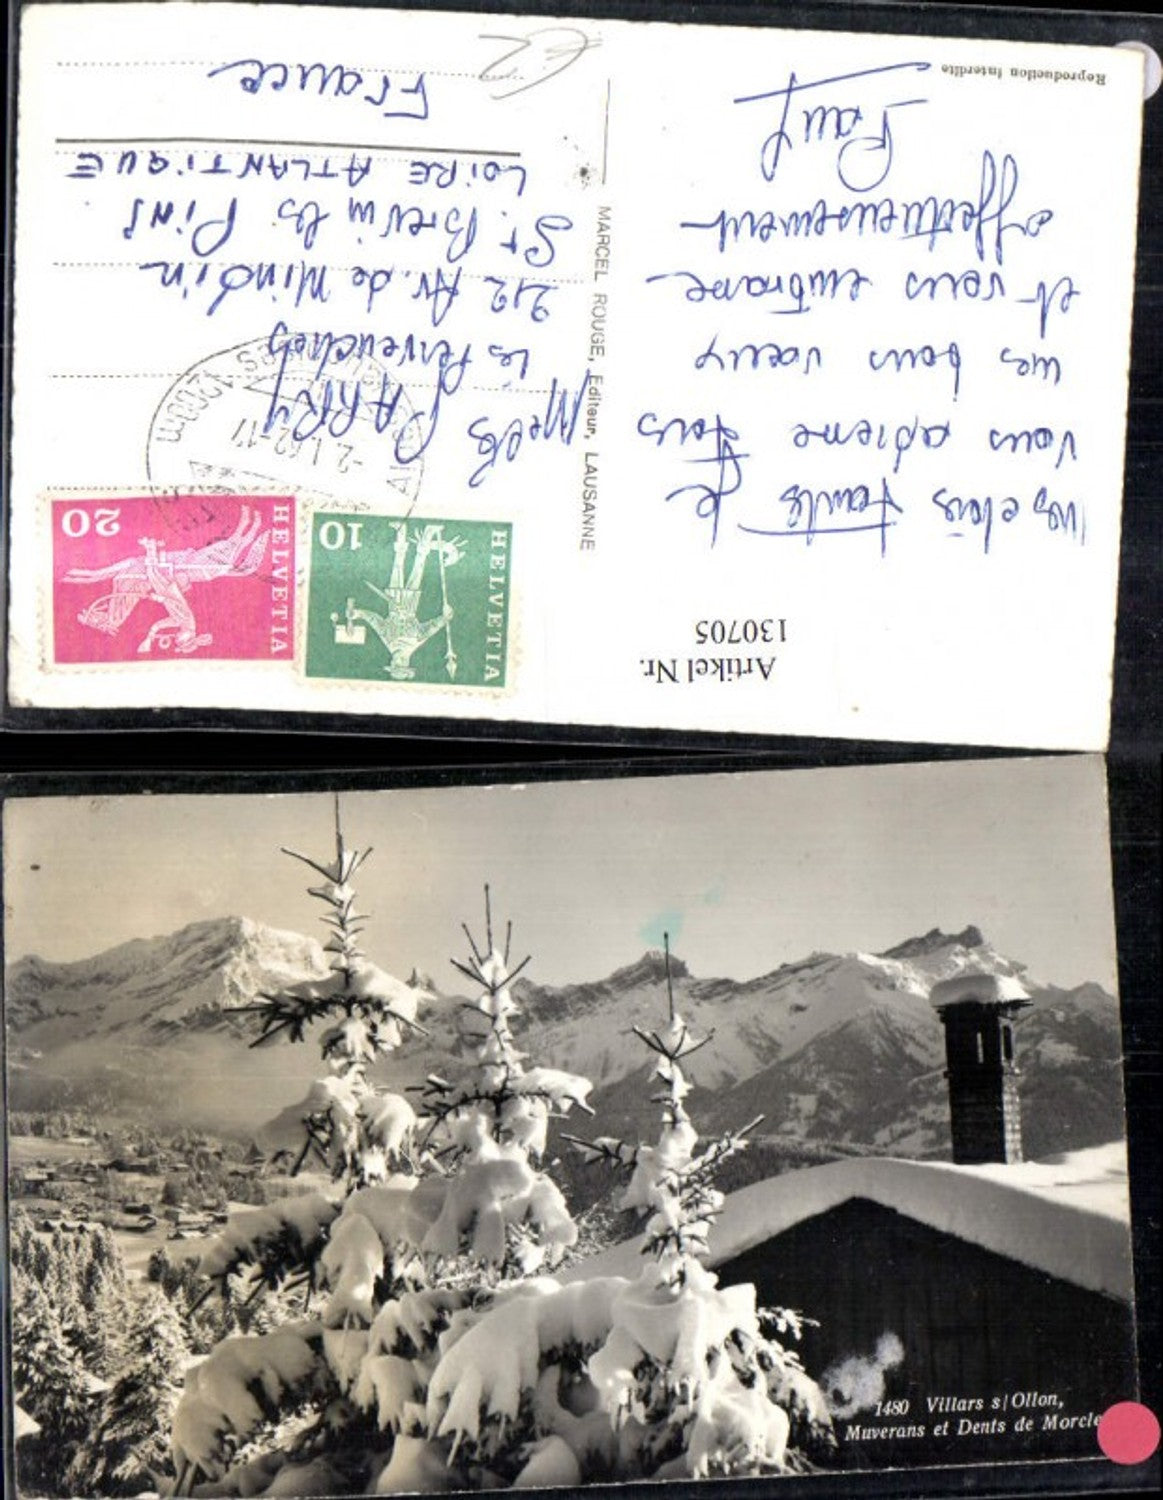 Reproduction interdite
Mes chers Tantes Je
vous adresse tous
mes bons voeux
et vous embrasse
affectueusement
Paul
MARCEL ROUGE, Editeur, LAUSANNE
Artikel Nr.
130705
HELVETIA
10
HELVETIA
20
-2.1.62-17
1200m
Melles PARRY
Les Pervenches
212 Av. de Mindin
St. Brevin les Pins
LOIRE ATLANTIQUE
France
1480 Villars s/Ollon,
Muverans et Dents de Morcle